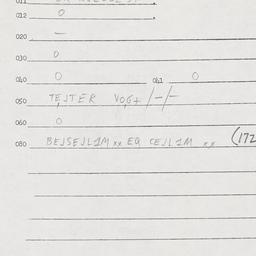 012 0 .
020 —
030 0
040 0 041 0
050 TEJTER VOG+ /-/-
060 0
080 BEJSEJL1M xx EQ CEJL1M xx (172